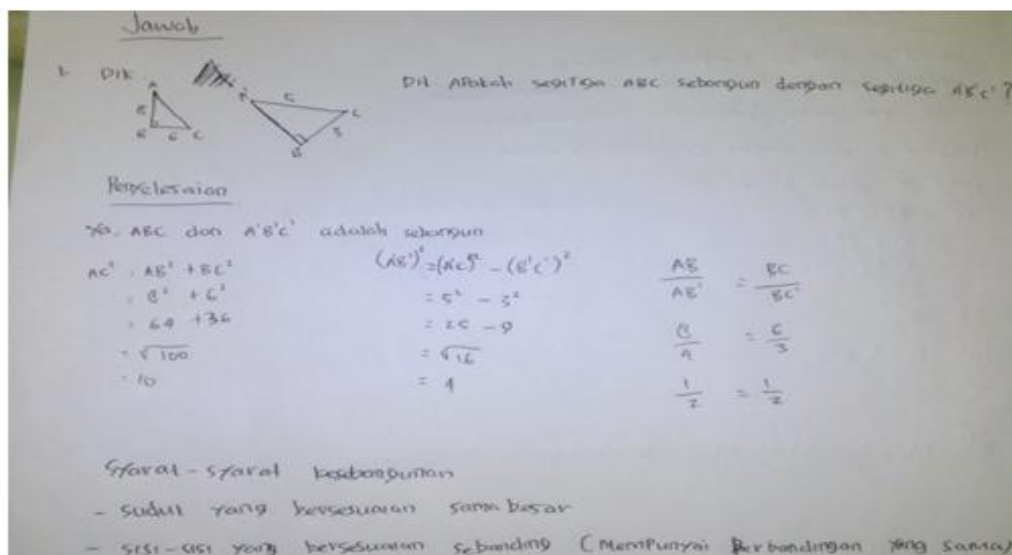 Jawab
1. Dik
A
8
B 6 C
A' 5 C'
3
B'
Dit Apakah segitiga ABC sebangun dengan segitiga A'B'C' ?
Penyelesaian
Ya. ABC dan A'B'C' adalah sebangun
AC² = AB² + BC²
= 8² + 6²
= 64 + 36
= √100
= 10
(A'B')² = (A'C')² - (B'C')²
= 5² - 3²
= 25 - 9
= √16
= 4
AB/A'B' = BC/B'C'
8/4 = 6/3
1/2 = 1/2
Syarat-syarat kesebangunan
- sudut yang bersesuaian sama besar
- sisi-sisi yang bersesuaian sebanding (mempunyai Perbandingan yang sama)